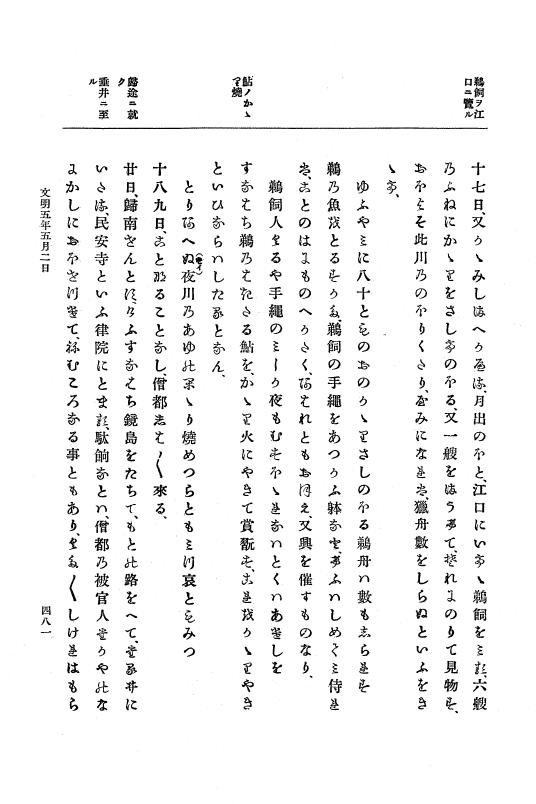 鵜飼ヲ江
口ニ覽ル
鮎ノかゝ
り燒
歸途ニ就
ク
垂井ニ至
ル
十七日、又かゝみしまへかへる、月出のほと、江口にいてゝ鵜飼をミる、六艘
のふねにかゝりをさしてのほる、又一艘をまうけて、それにのりて見物す、
おほよそ此川ののほりくたり、やみになれは、獵舟數をしらぬといふをき
ゝて、
ゆふやミに八十とものおのかゝりさしのほる鵜舟ハ數もしられす
鵜の魚をとるすかた、鵜飼の手繩をあつかふ躰なと、けふハしめてミ侍れ
は、ことのはにものへかたく、あはれともおほえ、又興を催すものなり、
鵜飼人くるや手繩のミしか夜もむすほゝれなハとくハあけしを
すなはち鵜のはきたる鮎を、かゝり火にやきて賞翫す、これをかゝりやき
といひならハしたるとなん、
とりあへぬ(もイ)夜川のあゆのかゝり燒めつらともミつ哀ともみつ
十八九日、ことなることなし、僧都しは〱來る、
廿日、歸南せんと すなはち鏡島をたちて、もとの路をへて、たる井に
いたる、民安寺といふ律院にとまる、駄餉なとハ、僧都の被官人 かやのな
にかしにおほせつけて、ねむころなる事ともあり、くた〱しけれはもら
文明五年五月二日
四八一